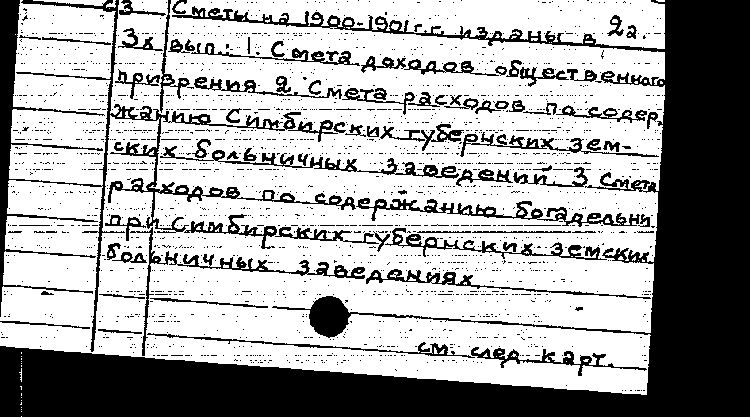 Сметы на 1900-1901 г.г. изданы в 2а.
3х вып.: 1. Смета доходов общественного
призрения 2. Смета расходов по содер-
жанию Симбирских губернских зем-
ских больничных заведений. 3. Смета
расходов по содержанию богадельни
при Симбирских губернских земских
больничных заведениях
см. след. карт.